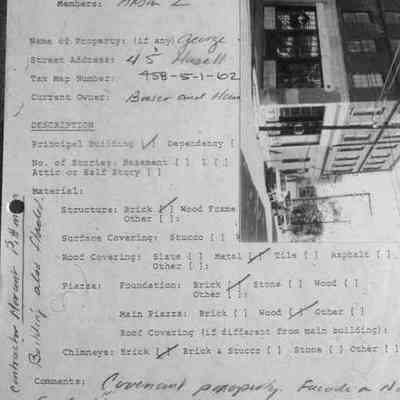 Members:
Name of Property: (if any) George
Street Address: 45 Hasell
Tax Map Number: 458-5-1-62
Current Owner: and
DESCRIPTION
Principal Building [✓] Dependency [
No. of Stories: Basement [ ] 1 [ ]
Attic or Half Story [ ]
Material:
Structure: Brick [✓] Wood Frame
Other [ ]:
Surface Covering: Stucco [ ]
Roof Covering: Slate [ ] Metal [✓] Tile [ ] Asphalt [ ]
Other [ ]:
Piazza: Foundation: Brick [✓] Stone [ ] Wood [ ]
Other [ ]:
Main Piazza: Brick [ ] Wood [✓] Other [ ]
Roof Covering (if different from main building):
Chimneys: Brick [✓] Brick & Stucco [ ] Stone [ ] Other [
Comments: Covenant property. Facade on
Contractor
Building also